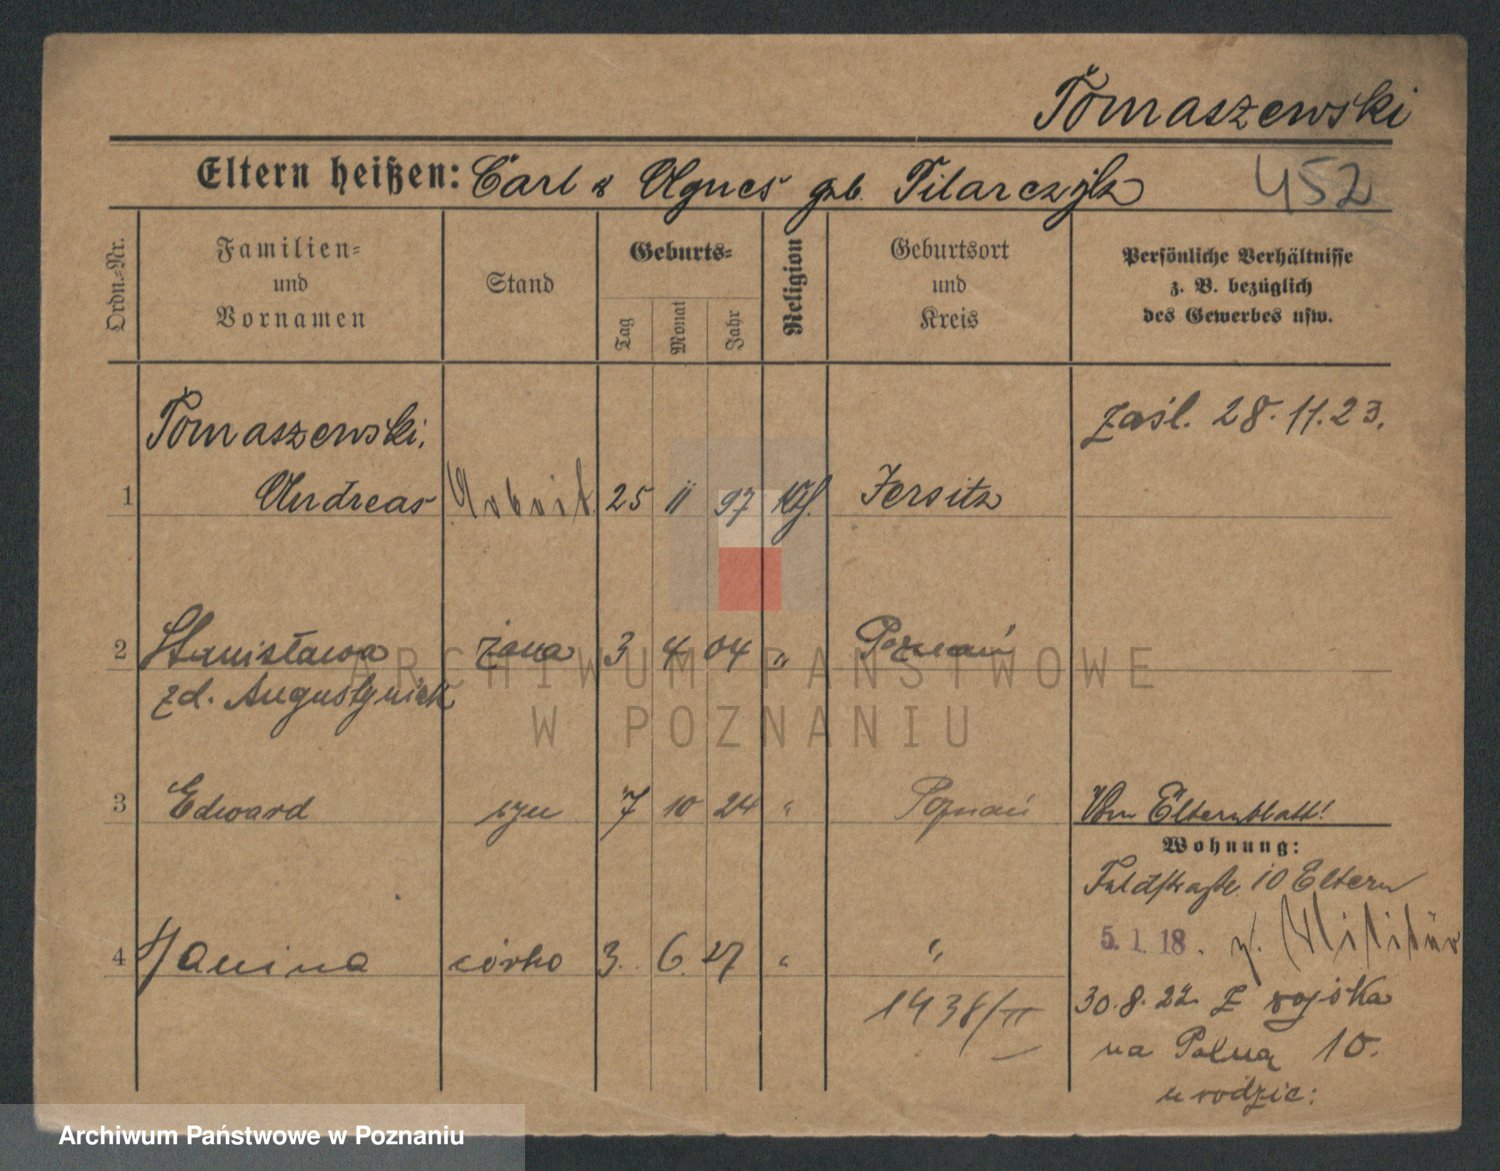 Tomaszewski
Eltern heißen: Carl & Agnes geb. Pilarczyk
452
Ordn.-Nr.
Familien-
und
Vornamen
Stand
Geburts-
Tag
Monat
Jahr
Religion
Geburtsort
und
Kreis
Persönliche Verhältnisse
z. B. bezüglich
des Gewerbes usw.
zaśl. 28.11.23.
Tomaszewski,
1 Andreas Arbeit. 25 11 97 kth. Jersitz
2 Stanisława żona 3 4 04 " Poznań
zd. Augustyniak
3 Edward syn 7 10 24 " Poznań
Vom Elternblatt!
Wohnung:
Feldstraße 10 Eltern
5.1.18. z. Militär
4 Janina córka 3. 6. 27 " "
1438/II
30.8.22 z wojska
na Polną 10.
u rodzic:
ARCHIWUM PAŃSTWOWE
W POZNANIU
Archiwum Państwowe w Poznaniu